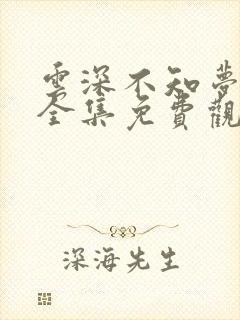 雲深不知夢
全集免費觀
深海先生